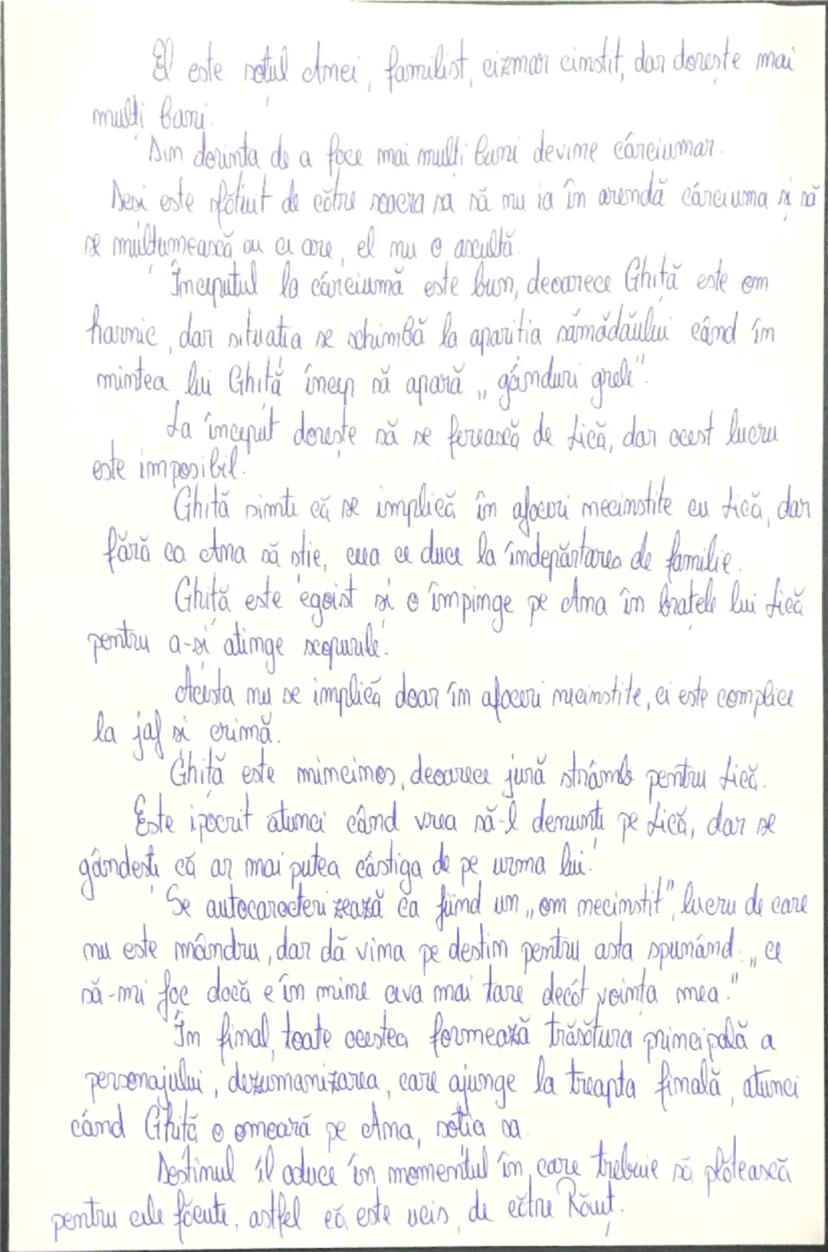 El este soțul Anei, familist, cizmar cinstit, dar dorește mai
mulți bani.
Din dorința de a face mai mulți bani devine cârciumar.
Deși este sfătuit de către soacra sa să nu ia în arendă cârciuma și să
se mulțumească cu ce are, el nu o ascultă.
Începutul la cârciumă este bun, deoarece Ghiță este om
harnic, dar situația se schimbă la apariția sămădăului când în
mintea lui Ghiță încep să apară „gânduri grele".
La început dorește să se ferească de Lică, dar acest lucru
este imposibil.
Ghiță simte că se implică în afaceri necinstite cu Lică, dar
fără ca Ana să știe, ceea ce duce la îndepărtarea de familie.
Ghiță este egoist și o împinge pe Ana în brațele lui Lică
pentru a-și atinge scopurile.
Acesta nu se implică doar în afaceri necinstite, ci este complice
la jaf și crimă.
Ghiță este mincinos, deoarece jură strâmb pentru Lică.
Este ipocrit atunci când vrea să-l denunțe pe Lică, dar se
gândește că ar mai putea câștiga de pe urma lui.
Se autocaracterizează ca fiind un „om necinstit", lucru de care
nu este mândru, dar dă vina pe destin pentru asta spunând „ce
să-mi fac dacă e în mine ceva mai tare decât voința mea."
În final, toate acestea formează trăsătura principală a
personajului, dezumanizarea, care ajunge la treapta finală, atunci
când Ghiță o omoară pe Ana, soția sa.
Destinul îl aduce în momentul în care trebuie să plătească
pentru cele făcute, astfel că este ucis, de către Răuț.